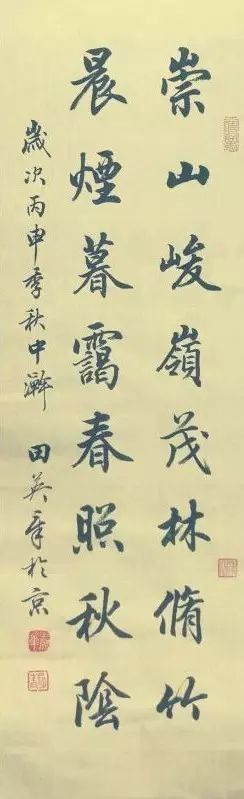 崇山峻嶺茂林脩竹
晨煙暮靄春煦秋陰
歲次丙申季秋中澣 田英章於京